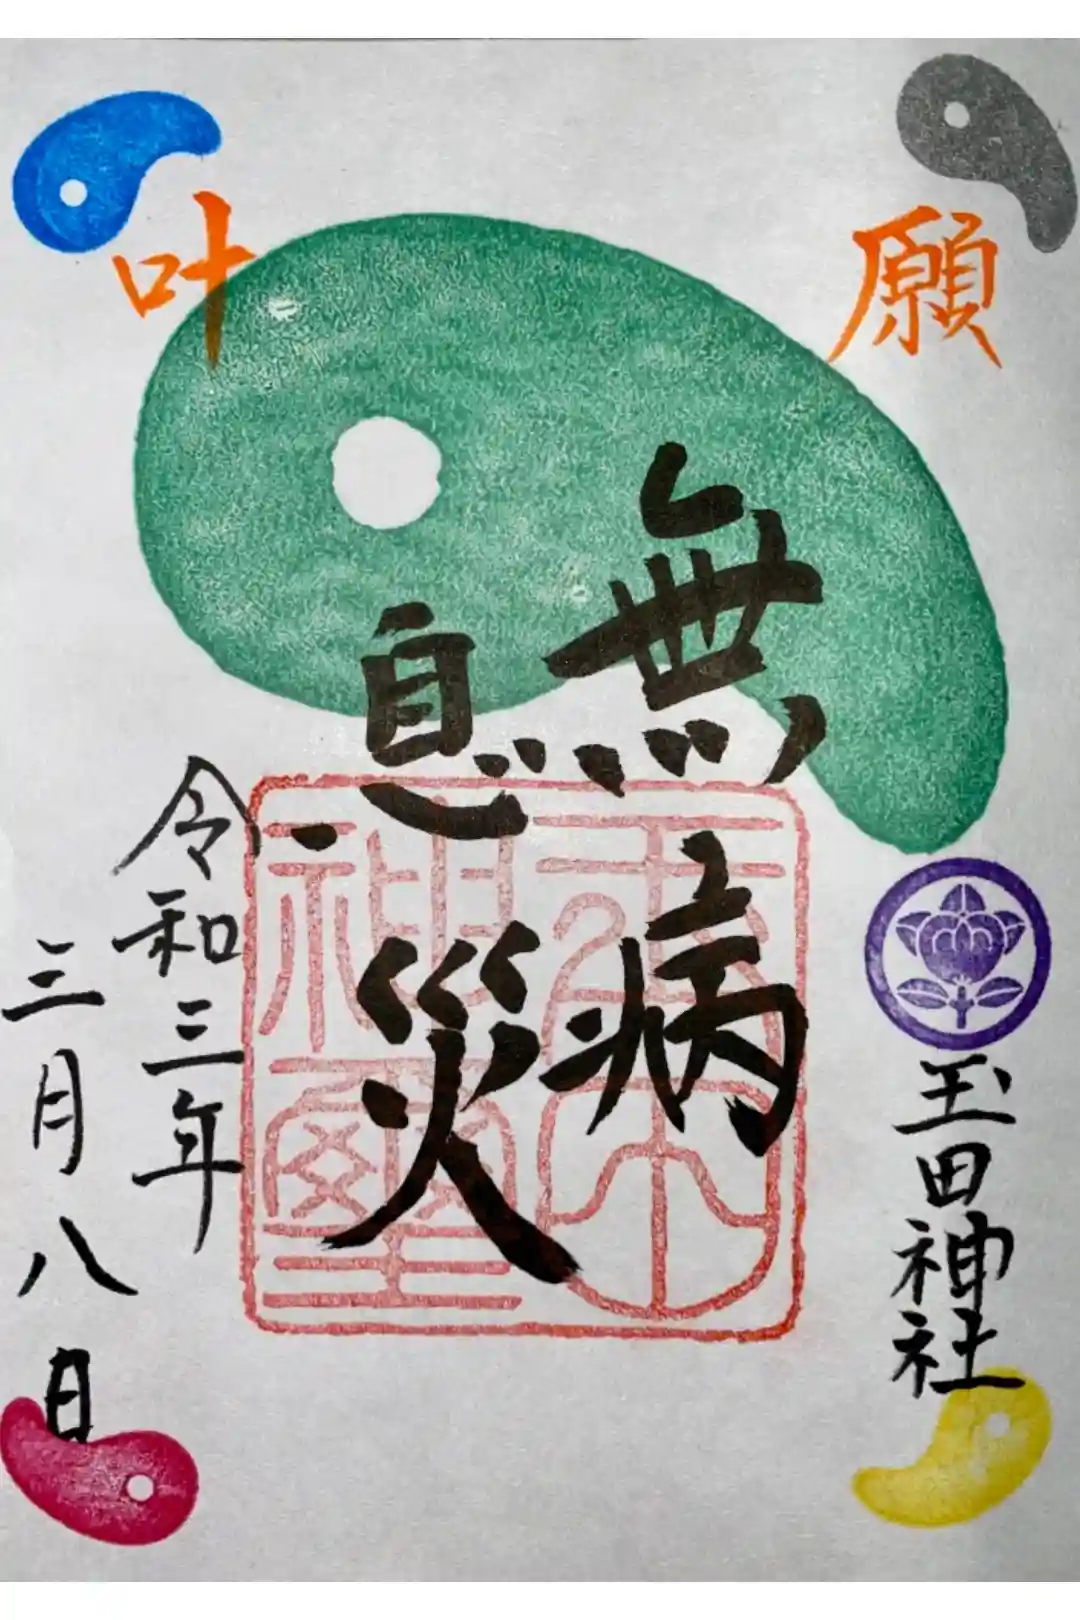 願
叶
玉田神社
無病
息災
玉田
神璽
令和三年
三月八日